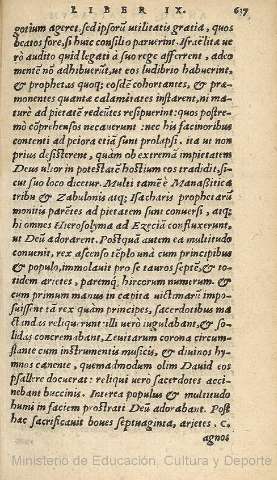 LIBER IX. 637
gotium ageret, sed ipsorũ utilitatis gratia, quos
beatos fore, si huic consilio paruerint. Israelitæ ue
rò audito quid legati à suo rege afferrent, adeo
mentẽ nõ adhibuerũt, ut eos ludibrio habuerint,
& prophetas quoq; eosdẽ cohortantes, & præ-
monentes quantæ calamitates instarent, ni ma-
turè ad pietatẽ redeũtes resipuerint: quos postre-
mò cõprehensos necauerunt: nec his facinoribus
contenti ad peiora etiã sunt prolapsi, ita ut non
prius desisterent, quàm ob extremã impietatem
Deus ultor in potestatẽ hostium eos tradidit, si-
cut suo loco dicetur. Multi tamẽ è Manaßitica
tribu & Zabulonis atq; Isacharis prophetarũ
monitis parẽtes ad pietatem sunt conuersi, atq;
hi omnes Hierosolyma ad Ezeciã confluxerunt,
ut Deũ adorarent. Postquã autem ea multitudo
conuenit, rex ascenso tẽplo unà cum principibus
& populo, immolauit pro se tauros septẽ, & to-
tidem arietes, paremq́; hircorum numerum. &
cum primum manus in capita uictimarũ impo-
suissent tã rex quàm principes, sacerdotibus ma
ctandas reliquerunt: illi uerò iugulabant, & so-
lidas concremabant, Leuitarum corona circum-
stante cum instrumentis musicis, & diuinos hy-
mnos canente, quemadmodum olim Dauid eos
psallere docuerat: reliqui uerò sacerdotes acci-
nebant buccinis. Interea populus & multitudo
humi in faciem prostrati Deũ adorabant. Post
hæc sacrificauit boues septuaginta, arietes. c.
agnos
Ministerio de Educación, Cultura y Deporte